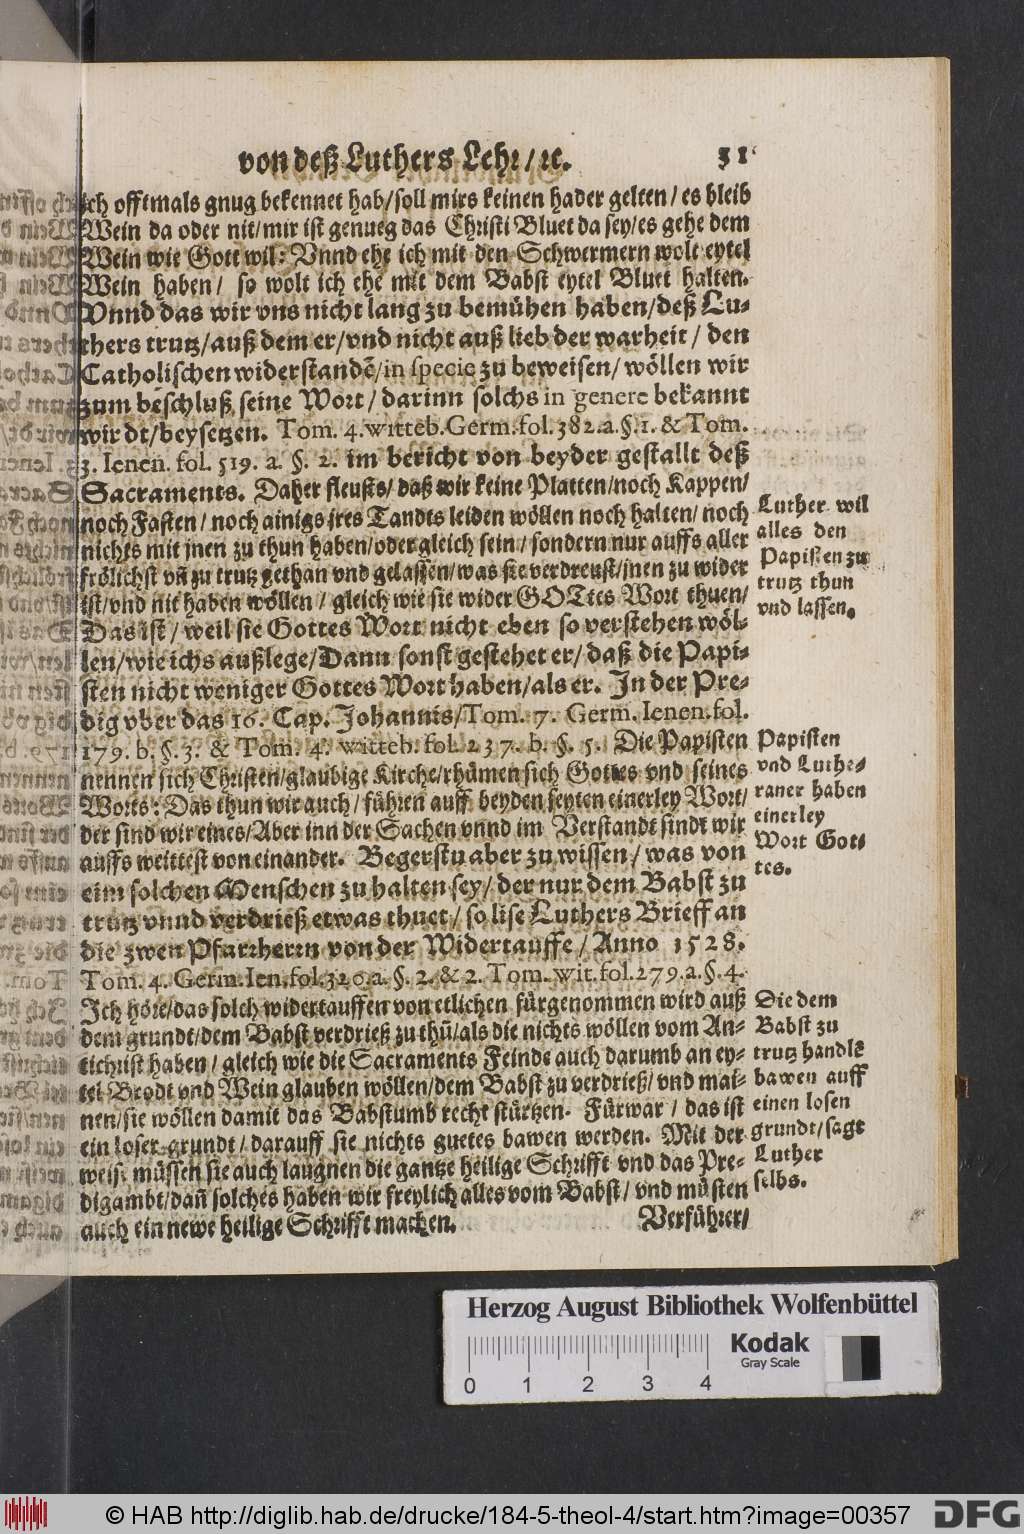 von deß Luthers Lehr/ ꝛc. 31
ich offtmals gnug bekennet hab/soll mirs keinen hader gelten/ es bleib
Wein da oder nit/mir ist genueg das Christi Bluet da sey/es gehe dem
Wein wie Gott wil: Vnnd ehe ich mit den Schwermern wolt eytel
Wein haben/ so wolt ich ehe mit dem Babst eytel Bluet halten.
Vnnd das wir vns nicht lang zu bemühen haben/deß Lu-
thers trutz/auß dem er/vnd nicht auß lieb der warheit/ den
Catholischen widerstandẽ/in specie zu beweisen/ wöllen wir
zum beschluß seine Wort/ darinn solchs in genere bekannt
wirdt/beysetzen. Tom. 4. witteb. Germ. fol. 382. a. §. 1. & Tom.
3. Ienen. fol. 519. a. §. 2. im bericht von beyder gestallt deß
Sacraments. Daher fleusts/ daß wir keine Platten/noch Kappen/
noch Fasten/ noch ainigs jres Tandts leiden wöllen noch halten/ noch
nichts mit jnen zu thun haben/oder gleich sein/ sondern nur auffs aller
frölichst vñ zu trutz gethan vnd gelassen/was sie verdreust/jnen zu wider
ist/vnd nit haben wöllen/ gleich wie sie wider GOTtes Wort thuen/
Das ist/ weil sie Gottes Wort nicht eben so verstehen wöl-
len/wie ichs außlege/Dann sonst gestehet er/ daß die Papi-
sten nicht weniger Gottes Wort haben/als er. In der Pre-
dig vber das 16. Cap. Johannis/Tom. 7. Germ. Ienen. fol.
179. b. §. 3. & Tom. 4. witteb. fol. 237. b. §. 5. Die Papisten
nennen sich Christen/glaubige Kirche/rhümen sich Gottes vnd seines
Worts: Das thun wir auch/ führen auff beyden seyten einerley Wort/
der sind wir eines/Aber inn der Sachen vnnd im Verstandt sindt wir
auffs weittest von einander. Begerstu aber zu wissen/ was von
eim solchen Menschen zu halten sey/ der nur dem Babst zu
trutz vnnd verdrieß etwas thuet/ so lise Luthers Brieff an
die zwen Pfarrherrn von der Widertauffe/ Anno 1528.
Tom. 4. Germ. Ien. fol. 320. a. §. 2. & 2. Tom. wit. fol. 279. a. §. 4.
Ich höre/das solch widertauffen von etlichen fürgenommen wird auß
dem grundt/dem Babst verdrieß zu thũ/als die nichts wöllen vom An-
tichrist haben/ gleich wie die Sacraments Feinde auch darumb an ey-
tel Brodt vnd Wein glauben wöllen/dem Babst zu verdrieß/ vnd mai-
nen/sie wöllen damit das Babstumb recht stürtzen. Fürwar/ das ist
ein loser grundt/ darauff sie nichts guetes bawen werden. Mit der
weiß müssen sie auch laugnen die gantze heilige Schrifft vnd das Pre-
digambt/dañ solches haben wir freylich alles vom Babst/ vnd müsten
auch ein newe heilige Schrifft machen.
Verführer/
Luther wil
alles den
Papisten zu
trutz thun
vnd lassen.
Papisten
vnd Luthe-
raner haben
einerley
Wort Got-
tes.
Die dem
Babst zu
trutz handlẽ
bawen auff
einen losen
grundt/sagt
Luther
selbs.
Herzog August Bibliothek Wolfenbüttel
Kodak
Gray Scale
0 1 2 3 4
© HAB http://diglib.hab.de/drucke/184-5-theol-4/start.htm?image=00357
DFG